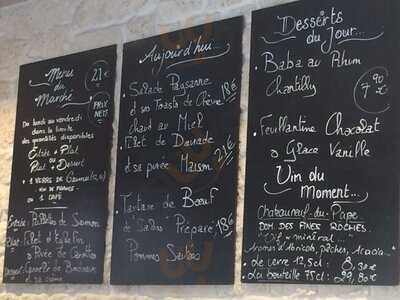 Menu
du
Marché
21€
PRIX
NET
Du lundi au vendredi
dans la limite
des quantités disponibles
Entrée + Plat
ou
Plat + Dessert
+ 1 verre de
vin de France
ou 1 café
Entrée:
de Saumon
Plat: Filet d'
Purée de Carottes
Dessert:
Aujourd'hui...
Salade Paysanne
et ses Toasts de Chèvre
chaud au Miel
18€
Filet de Daurade
et sa purée Maison
21€
Tartare de Bœuf
de "Salers" Préparé
18€
Pommes Sautées
Desserts
du Jour...
Baba au Rhum
Chantilly
7 90€
Feuillantine Chocolat
Glace Vanille
Vin du
Moment...
Chateauneuf-du-Pape
DOM. DES FINES ROCHES.
"Vif & minéral..."
Aromes d'Abricots, Pêches, Acacia..."
Le verre 12,5cl: 8,30€
La bouteille 75cl: 29,80€